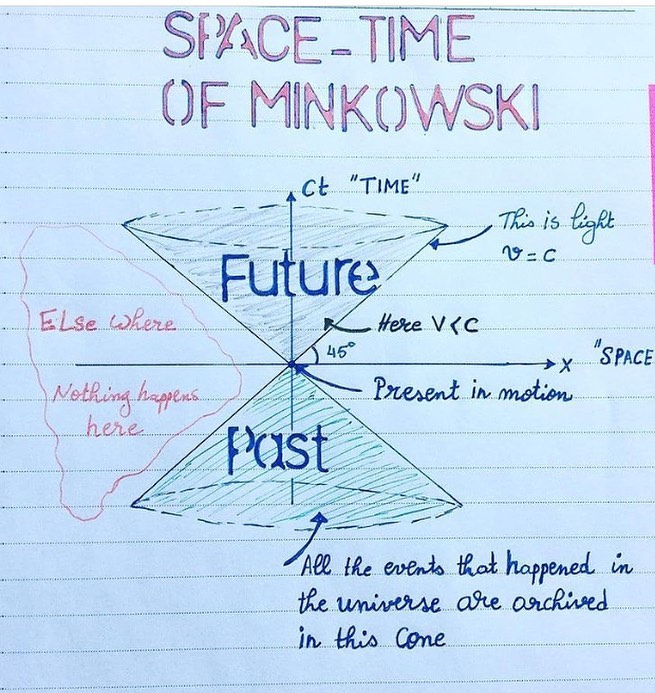 SPACE-TIME
OF MINKOWSKI
Ct "TIME"
This is light
v = c
Future
Else where
Here V<C
45°
x "SPACE
Nothing happens
here
Present in motion
Past
All the events that happened in
the universe are archived
in this Cone